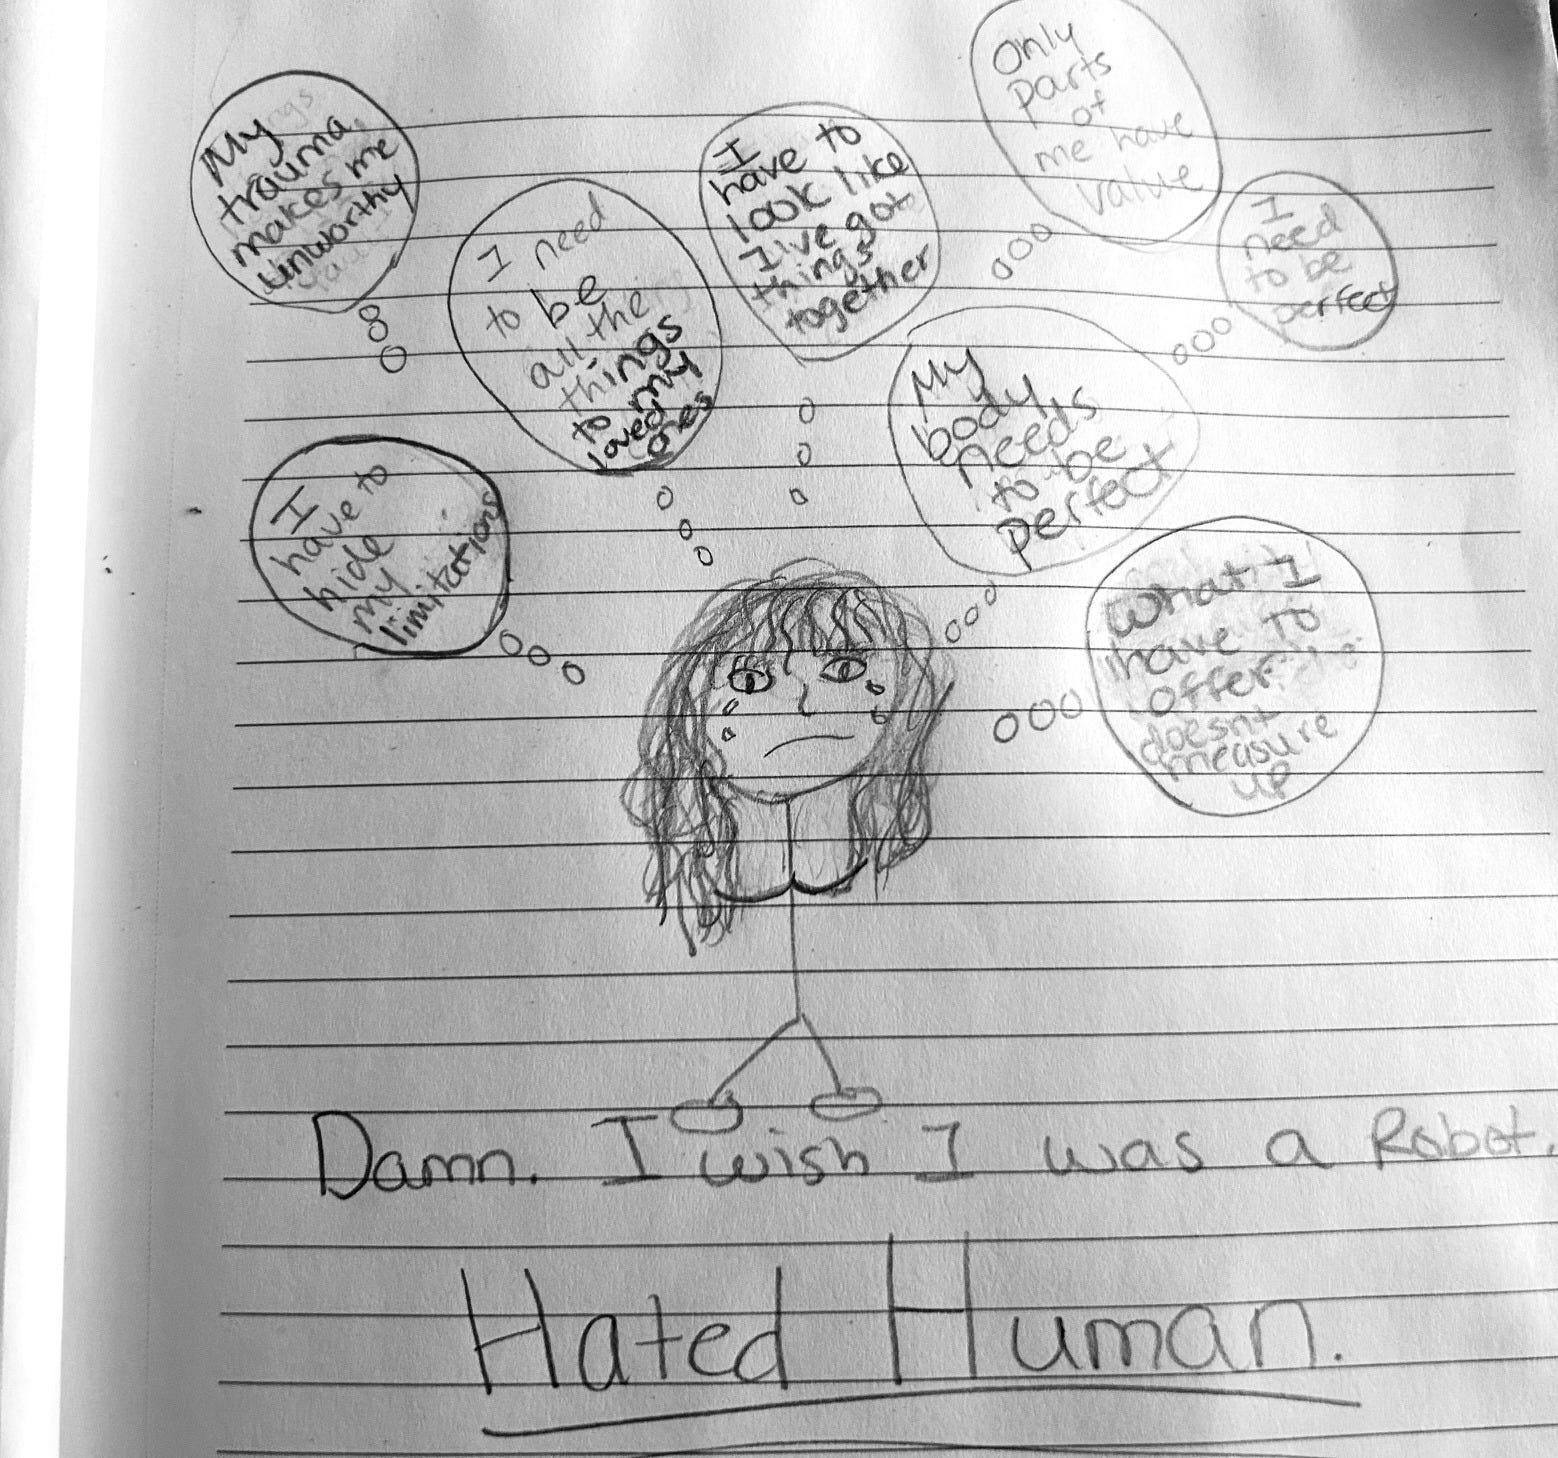 My
trauma
makes me
unworthy
I need
to be
all the
things
to my
loved
ones
I
have to
look like
I've got
things
together
Only
parts
of
me have
value
I
need
to be
perfect
I
have to
hide
my
limitations
My
body
needs
to be
perfect
What I
have to
offer
doesnt
measure
up
Damn. I wish I was a Robot.
Hated Human.